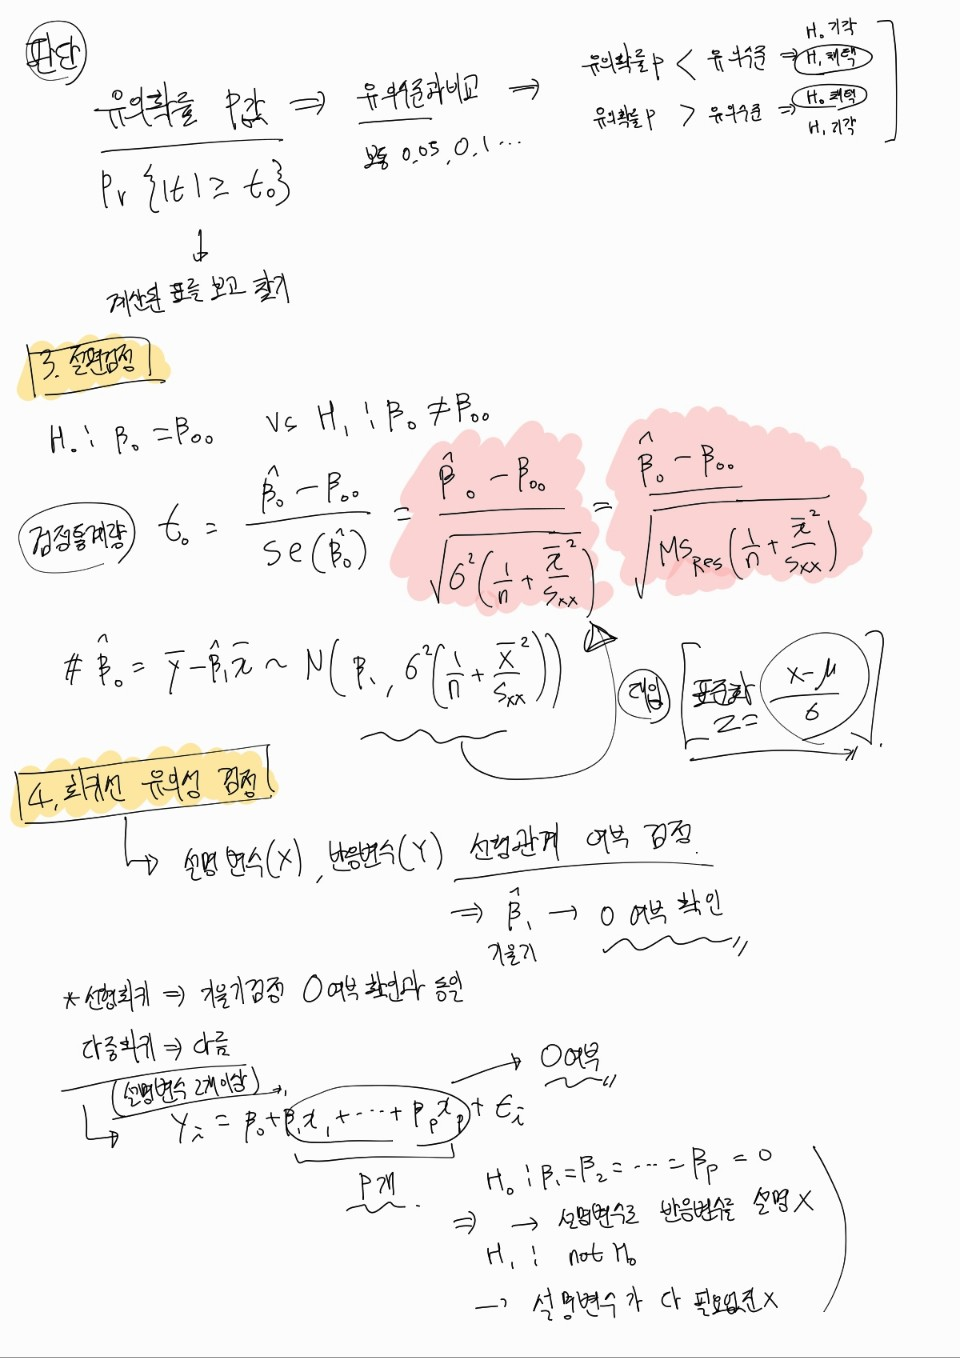 판단
유의확률 P값 ⇒ 유의수준과 비교 ⇒
유의확률 P < 유의수준 ⇒ H₀ 기각
H₁ 채택
유의확률 P > 유의수준 ⇒ H₀ 채택
H₁ 기각
보통 0.05, 0.1 ...
Pr {|t| ≥ t₀}
↓
계산된 표를 보고 찾기
3. 절편검정
H₀ : β₀ = β₀₀ vs H₁ : β₀ ≠ β₀₀
검정통계량 t₀ = (β̂₀ - β₀₀) / se(β̂₀) = (β̂₀ - β₀₀) / √(σ²(1/n + x̄²/Sxx)) = (β̂₀ - β₀₀) / √(MS_Res(1/n + x̄²/Sxx))
# β̂₀ = ȳ - β̂₁x̄ ~ N(β₁, σ²(1/n + x̄²/Sxx))
대입 [표준화 Z = (X-μ)/σ]
4. 회귀선 유의성 검정
↳ 설명변수(X), 반응변수(Y) 선형관계 여부 검정.
⇒ β̂₁ → 0 여부 확인
기울기
* 선형회귀 ⇒ 기울기검정 0여부 확인과 동일
다중회귀 ⇒ 다름
(설명변수 2개이상)
→ 0여부
↳ Yᵢ = β₀ + β₁x₁ + ... + βₚxₚ + εᵢ
P개
H₀ : β₁ = β₂ = ... = βₚ = 0
⇒ → 설명변수로 반응변수를 설명 X
H₁ : not H₀
→ 설명변수가 다 필요없진 X